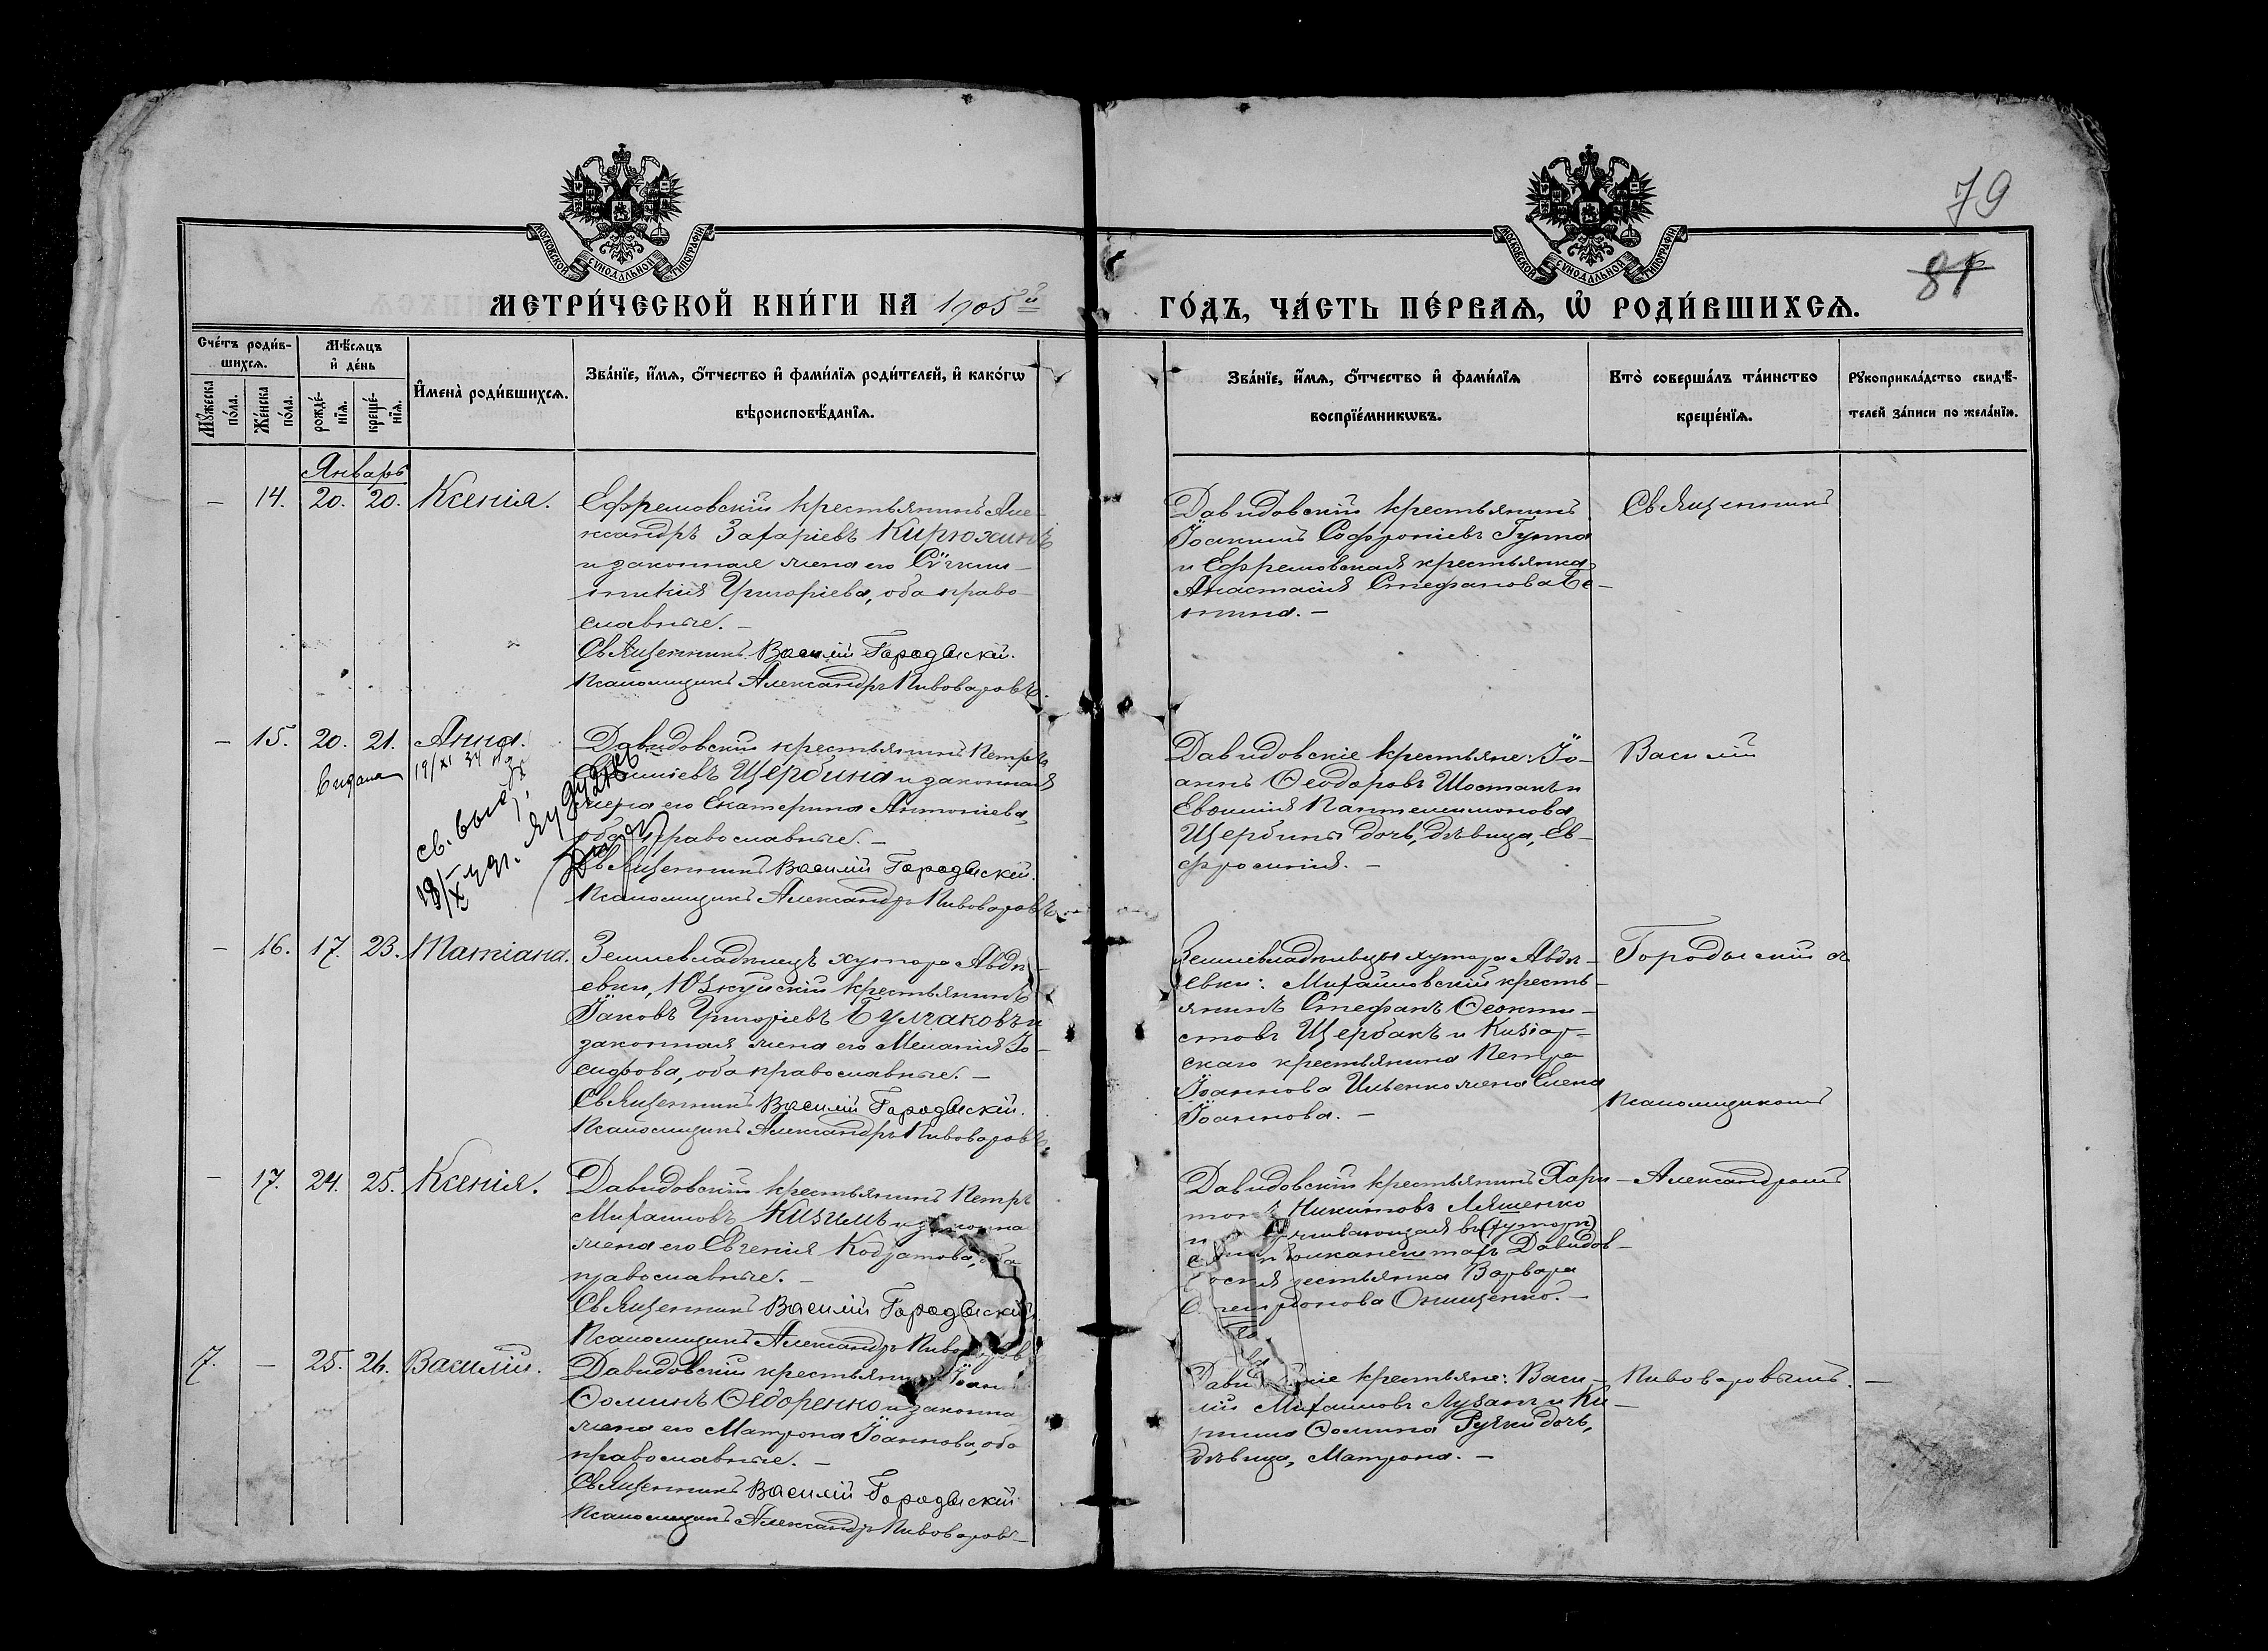 79
81
МОСКОВСКОЙ СѴНОДАЛЬНОЙ ТИПОГРАФІИ
МОСКОВСКОЙ СѴНОДАЛЬНОЙ ТИПОГРАФІИ
МЕТРИ́ЧЕСКОЙ КНИ́ГИ НА 1905й
ГО́ДЪ, ЧА́СТЬ ПЕ́РВАѦ, Ѡ҆ РОДИ́ВШИХСѦ.
Сче́тъ роди́в-
шихсѧ.
Мꙋ́жеска по́ла.
Же́нска по́ла.
Мѣ́сѧцъ
и҆ де́нь
рожде́-нїѧ.
креще́-нїѧ.
И҆мена̀ роди́вшихсѧ.
Зва́нїе, и҆́мѧ, ѻ҆́тчество и҆ фами́лїѧ роди́телей, и҆ како́гѡ
вѣроисповѣ́данїѧ.
Зва́нїе, и҆́мѧ, ѻ҆́тчество и҆ фами́лїѧ
воспрїе́мникѡвъ.
Кто̀ соверша́лъ та́инство
креще́нїѧ.
Рꙋкоприкла́дство свидѣ́-
телей за́писи по жела́нїю.
Январь
– 14. 20. 20. Ксенія.
Ефремовскій крестьянинъ Але-
ксандръ Захаріевъ Кирюхинъ
и законная жена его
Григоріева, оба право-
славные. –
Священникъ Василій Городыскій.
Псаломщикъ Александръ Пивоваровъ.
Давидовскій крестьянинъ
Іоакимъ Софроніевъ Гупта
и Ефремовская крестьянка
Анастасія Стефанова
Священникъ
– 15. 20. 21. Анна.
Видана 19/XI
св. выд.
Давидовскій крестьянинъ Петръ
Щербина и законная
жена его Екатерина Антоніева,
оба православные. –
Священникъ Василій Городыскій.
Псаломщикъ Александръ Пивоваровъ
Давидовскіе крестьяне: Іо-
аннъ Ѳеодоровъ Шостакъ и
Евѳимія Пантелеимонова
Щербины дочь, дѣвица, Ев-
фросинія. –
Василій
– 16. 17. 23. Татіана.
Землевладѣлецъ хутора Авдѣ-
евки, крестьянинъ
Іаковъ Григоріевъ Булгаковъ и
законная жена его Меланія Іо-
сифова, оба православные. –
Священникъ Василій Городыскій.
Псаломщикъ Александръ Пивоваровъ
Землевладѣльцы хутора Авдѣ-
евки: Михаиловскій кресть-
янинъ Стефанъ Ѳеокти-
стовъ Щербакъ и
скаго крестьянина Петра
Іоаннова Ильенко жена Елена
Іоаннова. –
Городыскій съ
Псаломщикомъ
– 17. 24. 25. Ксенія.
Давидовскій крестьянинъ Петръ
Михаиловъ Кизимъ и законная
жена его Евгенія Кодратова, оба
православные. –
Священникъ Василій Городыскій
Псаломщикъ Александръ Пивоваровъ
Давидовскій крестьянинъ Хари-
тонъ Никитовъ Ляшенко
и
Давидов-
ская крестьянка Варвара
Онищенко. –
Александромъ
7. – 25. 26. Василій.
Давидовскій крестьянинъ Іоаннъ
Ѳоминъ Ѳедоренко и законная
жена его Матрона Іоаннова, оба
православные. –
Священникъ Василій Городыскій
Псаломщикъ Александръ Пивоваровъ
Давидовскіе крестьяне: Васи-
лій Михаиловъ Лузанъ и Ки-
рилла Ѳомина дочь,
дѣвица, Матрона. –
Пивоваровымъ. –